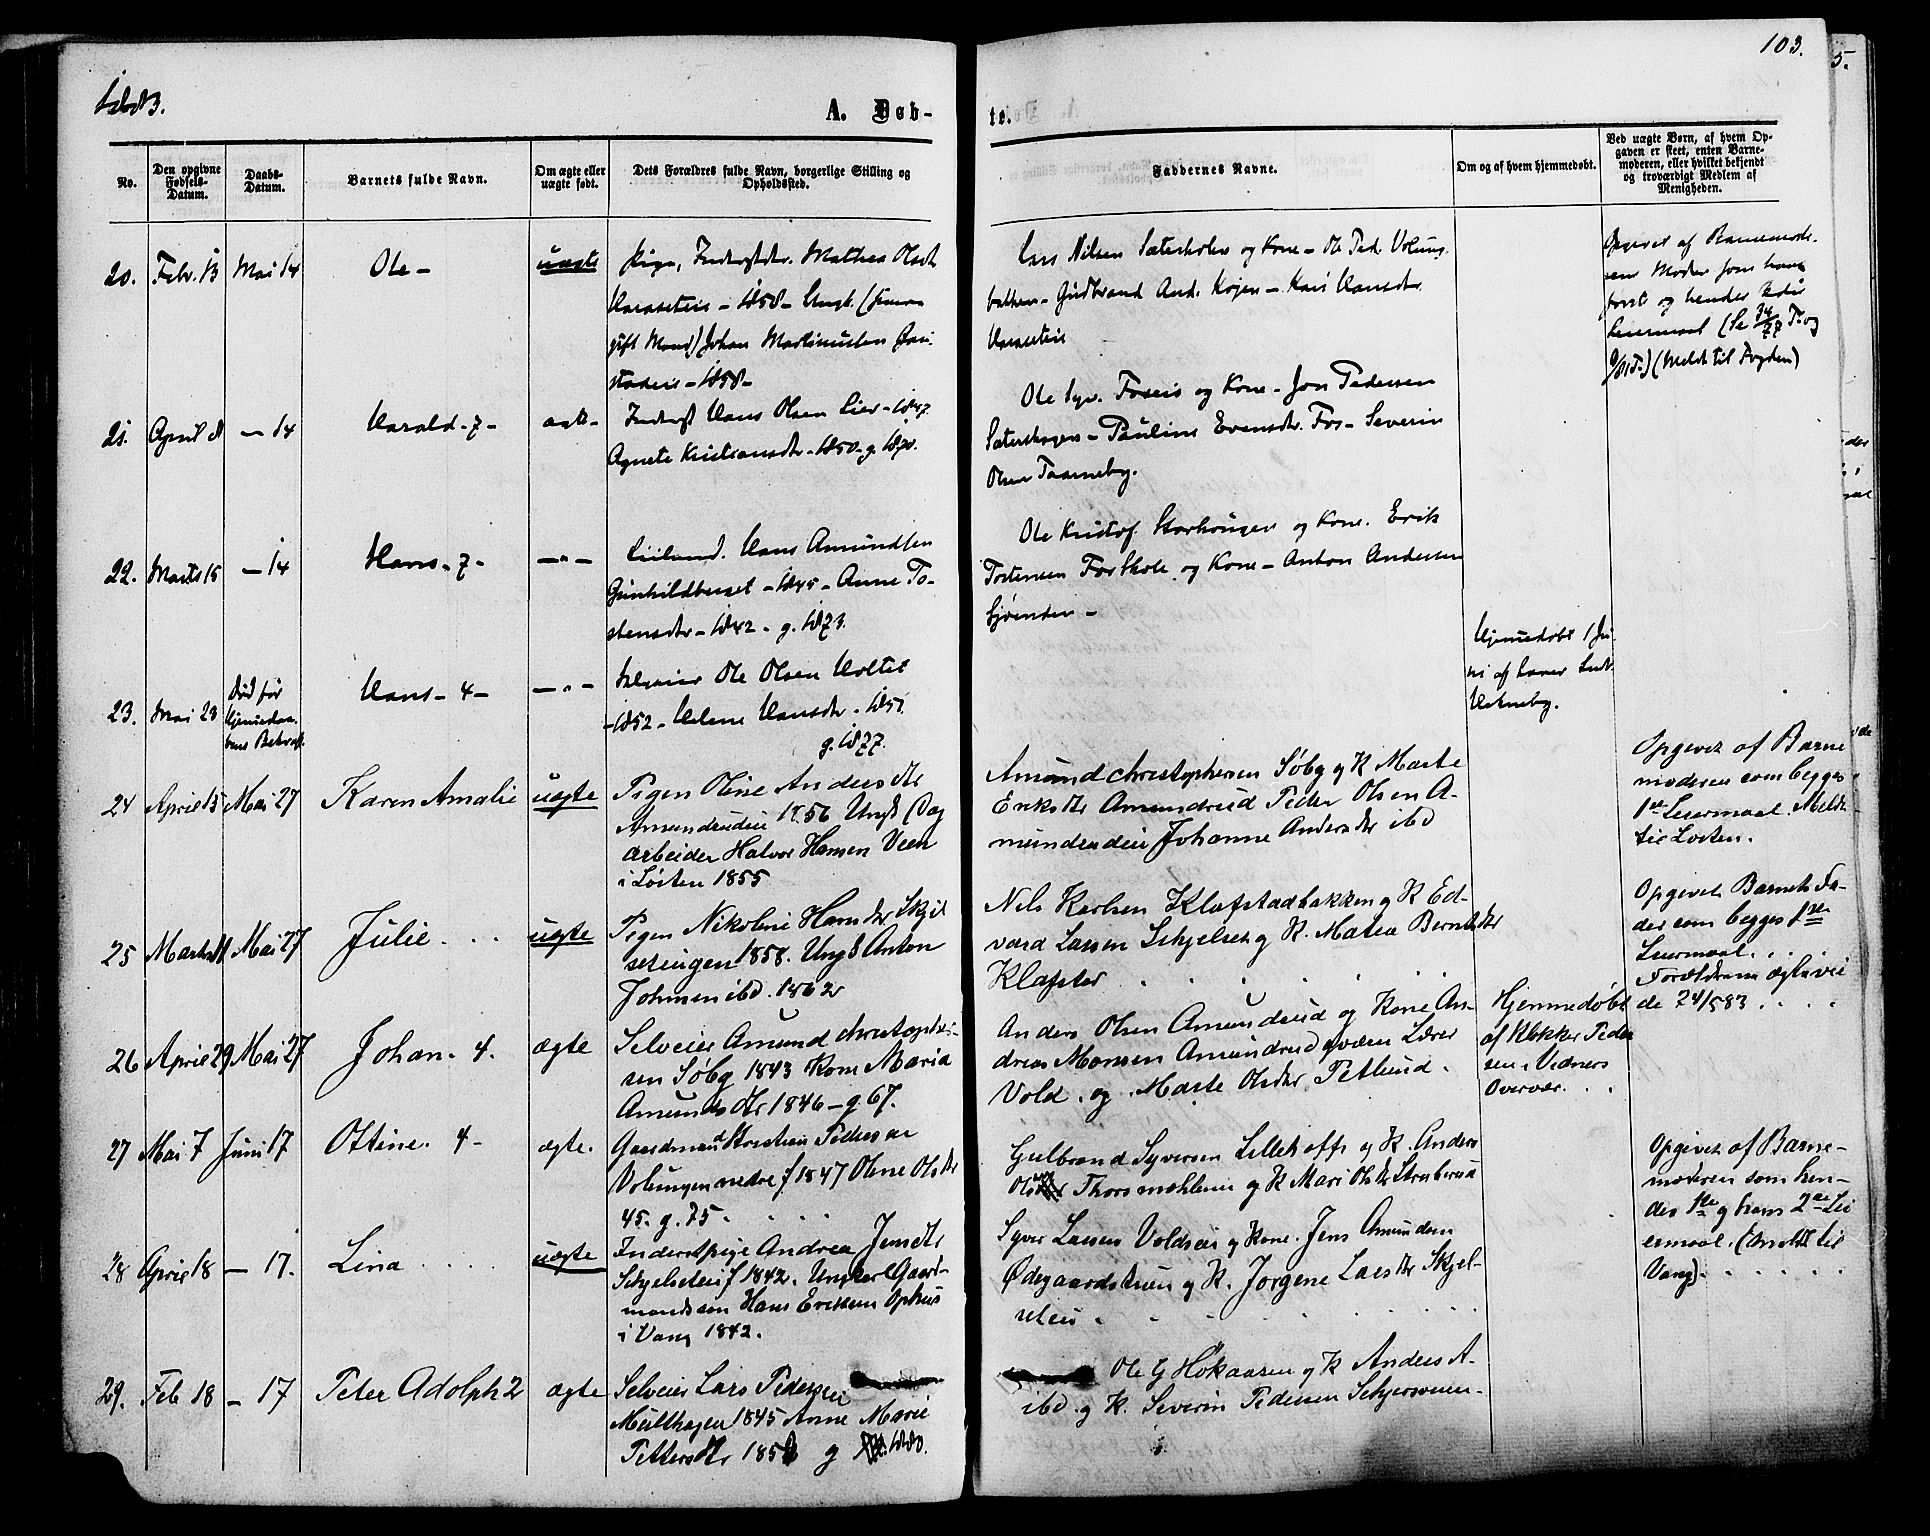 1883.
A. Døb-
te.
103.
5.
No.
Den opgivne Fødsels-Datum.
Daabs-Datum.
Barnets fulde Navn.
Om ægte eller uægte født.
Dets Forældres fulde Navn, borgerlige Stilling og Opholdssted.
Faddernes Navne.
Om og af hvem hjemmedøbt.
Ved uægte Børn, af hvem Op-
gaven er skeet, enten Barne-
moderen, eller hvilket bekjendt
og troværdigt Medlem af
Menigheden.
20. Febr. 13 Mai 14 Ole - uægte
Pige, Inderstdtr. Mathea Olsdtr
- 1858 - Ungk. (
gift Mand) Johan Martinusen
- 1858 -
Lars Nilsen Sæterskolen og Kone - Ole Ped. Volung-
bakken - Gudbrand And. Kojen - Kari Hansdtr.
Opgivet af Barnemode-
ren
første og hendes 2det
Leiermaal (Se
(Meldt til Fogden)
21. April 8 - 14 Harald - 7 - ægte -
Inderst Hans Olsen Lier - 1847.
Agnete Kristiansdtr - 1850 - g. 1870.
Ole Syv. Foseie og Kone - Jon Pedersen
Sæterskogen - Pauline Evensdtr. Fos - Severin
Olsen Taarneby.
22. Marts 15 - 14 Hans - 7 - - " -
Leilend. Hans Amundsen
Gunhildberget - 1845 - Anne To-
stensdtr - 1842 - g. 1873.
Ole Kristof. Storhaugen og Kone. Erik
Tostensen Fosskole og Kone - Anton Andersen
23. Mai 23
Død før
Hjemmedaa-
bens Bekræft.
Hans - 4 - - " -
Selveier Ole Olsen Holtet
- 1852 - Helene Hansdtr - 1857.
g. 1877.
Hjemmedøbt 1 Ju-
ni af
24 April 15 Mai 27 Karen Amalie uægte
Pigen Oline Andersdtr
Amundrudeie 1856 Ungk Dag
arbeider Halvor Hansen Veen
i Løiten 1855
Amund Christophersen Søbg og K Marte
Eriksdtr Amundrud Peder Olsen A-
mundrudeie Johanne Andersdtr ibd
Opgivet af Barne
moderen som begges
1ste Leiermaal. Meldt
til Løiten.
25 Marts 11 Mai 27 Julie . . . uægte
Pigen Nikoline Hansdtr Skjel
setengen 1858. Ungk Anton
Johnsen ibd. 1862
Nils Karlsen Klæfstadbakken og K Ed-
vard Larsen Skjelset og K. Matea Berntsdtr
Klæfster . . . .
Opgivet Barnets Fa-
der som begges 1ste
Leiermaal. . . .
Forældrene ægteviede
24/5 83 . . . .
26 April 29 Mai 27 Johan. 4. ægte
Selveier Amund Christopher-
sen Søbg 1843 Kone Maria
Amundsdtr 1846 - g 67.
Anders Olsen Amundrud og Kone An-
dreas Monsen Amundrud Lærer
Vold . og . Marte Olsdtr Petlund .
Hjemmedøbt
af Klokker Peder
sen i Vidners
Overvær. . .
27 Mai 7 Juni 17 Ottine. 4 - ægte.
Gaardmand Kristian Pedersen
Volungen nedre f 1847 Oline Olsdtr
45. g. 75. . . .
Gulbrand Syversen Lillehoff og K. Anders
Olsen Thorsmøhlen og K Mari Olsdtr Struberud
28 April 18 - 17. Lina . . . . uægte
Inderstpige Andrea Jensdtr
Skjelseteie f 1842. Ungkar Gaard-
mandssøn Hans Eriksen Ophus
i Vang 1842.
Syver Larsen Voldseie og Kone. Jens Amundsen
Ødegaardstuen og K. Jørgene Larsdtr Skjel-
seteie . . . . .
Opgivet af Barne-
moderen som hen-
des 1ste og hans 2det Lei
ermaal. (Meldt til
Vang). . . . . .
29. Feb 18 - 17 Peter Adolph 2 ægte
Selveier Lars Pedersen
Mælihagen 1845 Anne Marie
Pettersdtr 185 g 1880.
Ole G Høkaasen og K Anders A-
ibd. og K. Severin Pedersen